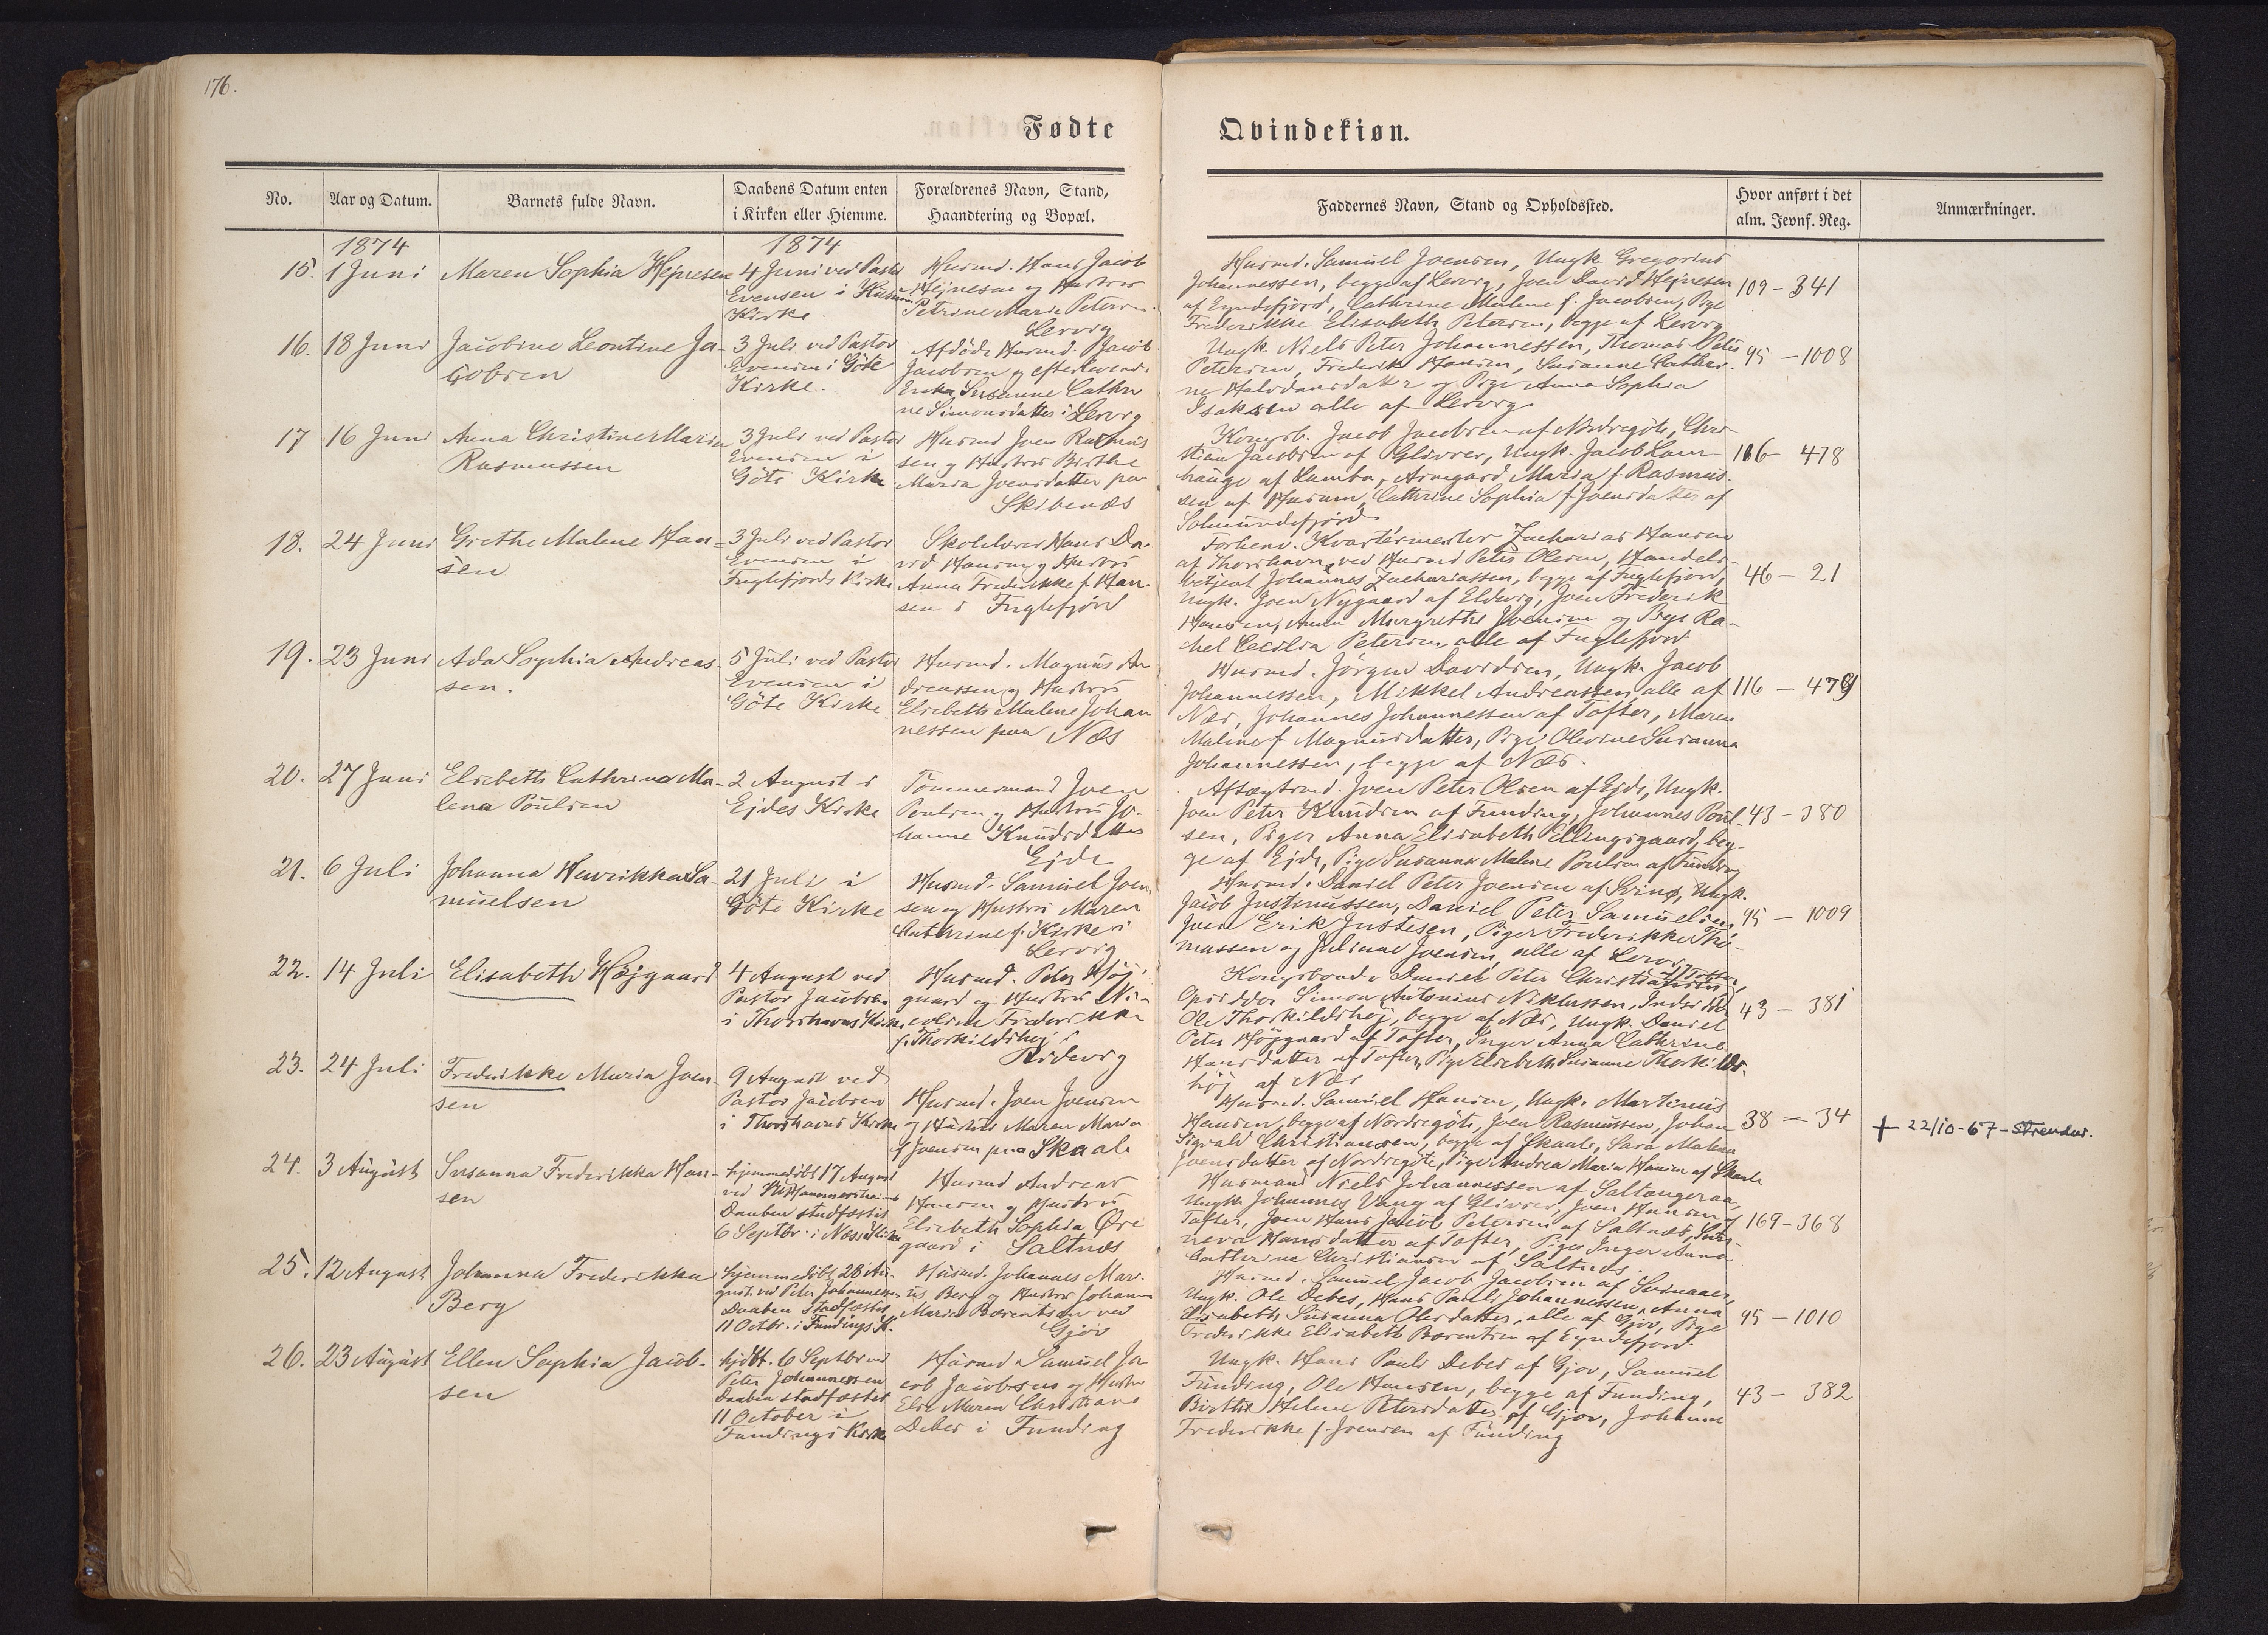 176.
Fødte
Qvindekiøn.
No.
Aar og Datum.
Barnets fulde Navn.
Daabens Datum enten
i Kirken eller Hiemme.
Forældrenes Navn, Stand,
Haandtering og Bopæl.
Faddernes Navn, Stand og Opholdssted.
Hvor anført i det
alm. Jevnf. Reg.
Anmærkninger.
1874
1874
15. 1 Juni
Maren Sophia Hejnesen
4 Juni ved Pastor
Evensen i
Kirke
Husmd. Hans Jacob
Hejnesen og Hustru
Petrine Marie Petersen
Lervig
Husmd. Samuel Joensen, Ungk. Gregorius
Johannessen, begge af Lervig, Joen David Hejnesen
af Eyndefjord, Cathrine Malene f. Jacobsen, Pige
Frederikke Elisabeth Petersen, begge af Lervig
109 - 341
16. 18 Juni
Jacobine Leontine Ja-
cobsen
3 Juli ved Pastor
Evensen i Göte
Kirke.
Afdöde Husmd. Jacob
Jacobsen og efterlevende
Enke Susanne Cathri
ne Simonsdatter i Lervig
Ungk. Niels Peter Johannessen, Thomas Peter
Petersen, Frederik Hansen, Susanne Cathri-
ne Halvdansdatter og Pige Anna Sophia
Isaksen alle af Lervig
95 - 1008
17 16 Juni
Anna Christine Maria
Rasmussen
3 Juli ved Pastor
Evensen i
Göte Kirke
Husmd Joen Rasmus
sen og Hustru Birthe
Maria Joensdatter paa
Skibenæs
Kongsb. Jacob Jacobsen af Nordregöte, Chri-
stian Jacobsen af Glivrer, Ungk. Jacob Lam-
hauge af Lamba, Armgard Maria f. Rasmus-
sen af Husum, Cathrine Sophia f. Joensdatter af
Solmundefjord
116 - 478
18. 24 Juni
Grethe Malene Han-
sen
3 Juli ved Pastor
Evensen i
Fuglefjords Kirke
Skolelærer Hans Da-
vid Hansen og Hustru
Anna Frederikke f. Han-
sen i Fuglefjord
Forhenv. Kvartérmester Zacharias Hansen
af Thorshavn, ved Husmd Peter Olesen, Handels-
betjent Johannes Zachariassen, begge af Fuglefjord,
Ungk. Joen Nygaard af Eldevig, Joen Frederik
Hansen, Anna Margrethe Joensen og Pige Ra-
chel Cecilia Petersen, alle af Fuglefjord
46 - 21
19. 23 Juni
Ada Sophia Andreas-
sen.
5 Juli ved Pastor
Evensen i
Göte Kirke
Husmd. Magnus An
dreassen og Hustru
Elsebeth Malene Johan
nessen paa Næs
Husmd. Jörgen Davidsen, Ungk. Jacob
Johannessen, Mikkel Andreassen alle af
Næs, Johannes Johannessen af Tofter, Maren
Malene f Magnusdatter, Pige Olevine Susanna
Johannessen, begge af Næs.
116 - 479
20. 27 Juni
Elsebeth Cathrina Ma-
lena Poulsen
2 August i
Ejdes Kirke
Tömmermand Joen
Poulsen og Hustru Jo-
hanne Knudsdatter
Ejde
Aftægtsmd. Joen Peter Olsen af Ejde, Ungk.
Joen Peter Knudsen af Funding, Johannes Poul-
sen, Piger Anna Elisabeth Ellingsgaard, beg-
ge af Ejde, Pige Susanna Malene Poulsen af Funding
43 - 380
21. 6 Juli
Johanna Henrikka Sa-
muelsen
21 Juli i
Göte Kirke
Husmd. Samuel Joen
sen og Hustru Maren
Cathrine f. Kirke i
Lervig
Husmd. Daniel Peter Joensen af Svinø, Ungk.
Jacob Justinussen, Daniel Peter Samuelsen,
Joen Erik Justesen, Piger Frederikke Tho-
massen og Juliane Joensen, alle af Lervig
95 - 1009
22. 14 Juli
Elisabeth Højgaard
4 August ved
Pastor Jacobsen
i Thorshavns Kirke
Husmd. Peter Höj-
gaard og Hustru Ni-
coline Frederikke
f. Thorkildshøj i
Ridevig
Kongsbonde Daniel Peter Christiansen af Tofter,
Opsidder Simon Antonius Niklassen, Indsidder
Ole Thorkildshøj, begge af Næs, Ungk. Daniel
Peter Højgaard af Tofter, Inger Anna Cathrine
Hansdatter af Tofter, Pige Elsebeth Susanne Thorkilds-
høj af Næs
43 - 381
23. 24 Juli
Frederikke Maria Joen-
sen
9 August ved
Pastor Jacobsen
i Thorshavns Kirke
Husmd. Joen Joensen
og Hustru Maren Maria
f Joensen paa Skaale
Husmd. Samuel Hansen, Ungk. Martinus
Hansen, begge af Nordregöte, Joen Rasmussen, Johan
Sigvald Christiansen, begge af Skaale, Sara Malena
Joensdatter af Nordregöte, Pige Andrea Maria Hansen af Skaale
38 - 34
+ 22/10-67 - Strendur.
24. 3 August
Susanna Frederikka Han-
sen
hjemmedöbt 17 August
ved
Daaben stadfæstet
6 Septbr. i Næs Kirke
Husmd Andreas
Hansen og Hustru
Elsebeth Sophia Øre
gaard i Saltnæs
Husmand Niels Johannessen af Saltangeraa,
Ungk. Johannes Vang af Glivrer, Joen Hansen af
Tofter, Joen Hans Jacob Petersen af Saltnæs,
Hansdatter af Tofter, Pige Inger Anna
Catterine Christiansen af Saltnæs
169 - 368
25. 12 August
Johanna Frederikka
Berg
hjemmedöbt 28 Au-
gust ved Peter Johannessen
Daaben Stadfæstet
11 Octbr. i Fundings K.
Husmd. Johannes Mari-
us Berg og Hustru Johanna
Maria Barentsen ved
Gjov
Husmd. Samuel Jacob Jacobsen af Svinaaer,
Ungk. Ole Debes, Hans Pauli Johannessen, Anna
Elisabeth Susanna Olesdatter, alle af Gjov, Pige
Frederikke Elisabeth Barentsen af Eyndefjord.
95 - 1010
26. 23 August
Ellen Sophia Jacob-
sen
hjdbt. 6 Septbr ved
Peter Johannessen
Daaben stadfæstet
11 October i
Fundings Kirke
Husmd Samuel Ja
cob Jacobsen og Hustru
Else Maren Christiane
Debes i Funding
Ungk. Hans Pauli Debes af Gjov, Samuel
Funding, Ole Hansen, begge af Funding,
Birthe Helene Petersdatter af Gjov, Johanne
Frederikke f. Joensen af Funding
43 - 382